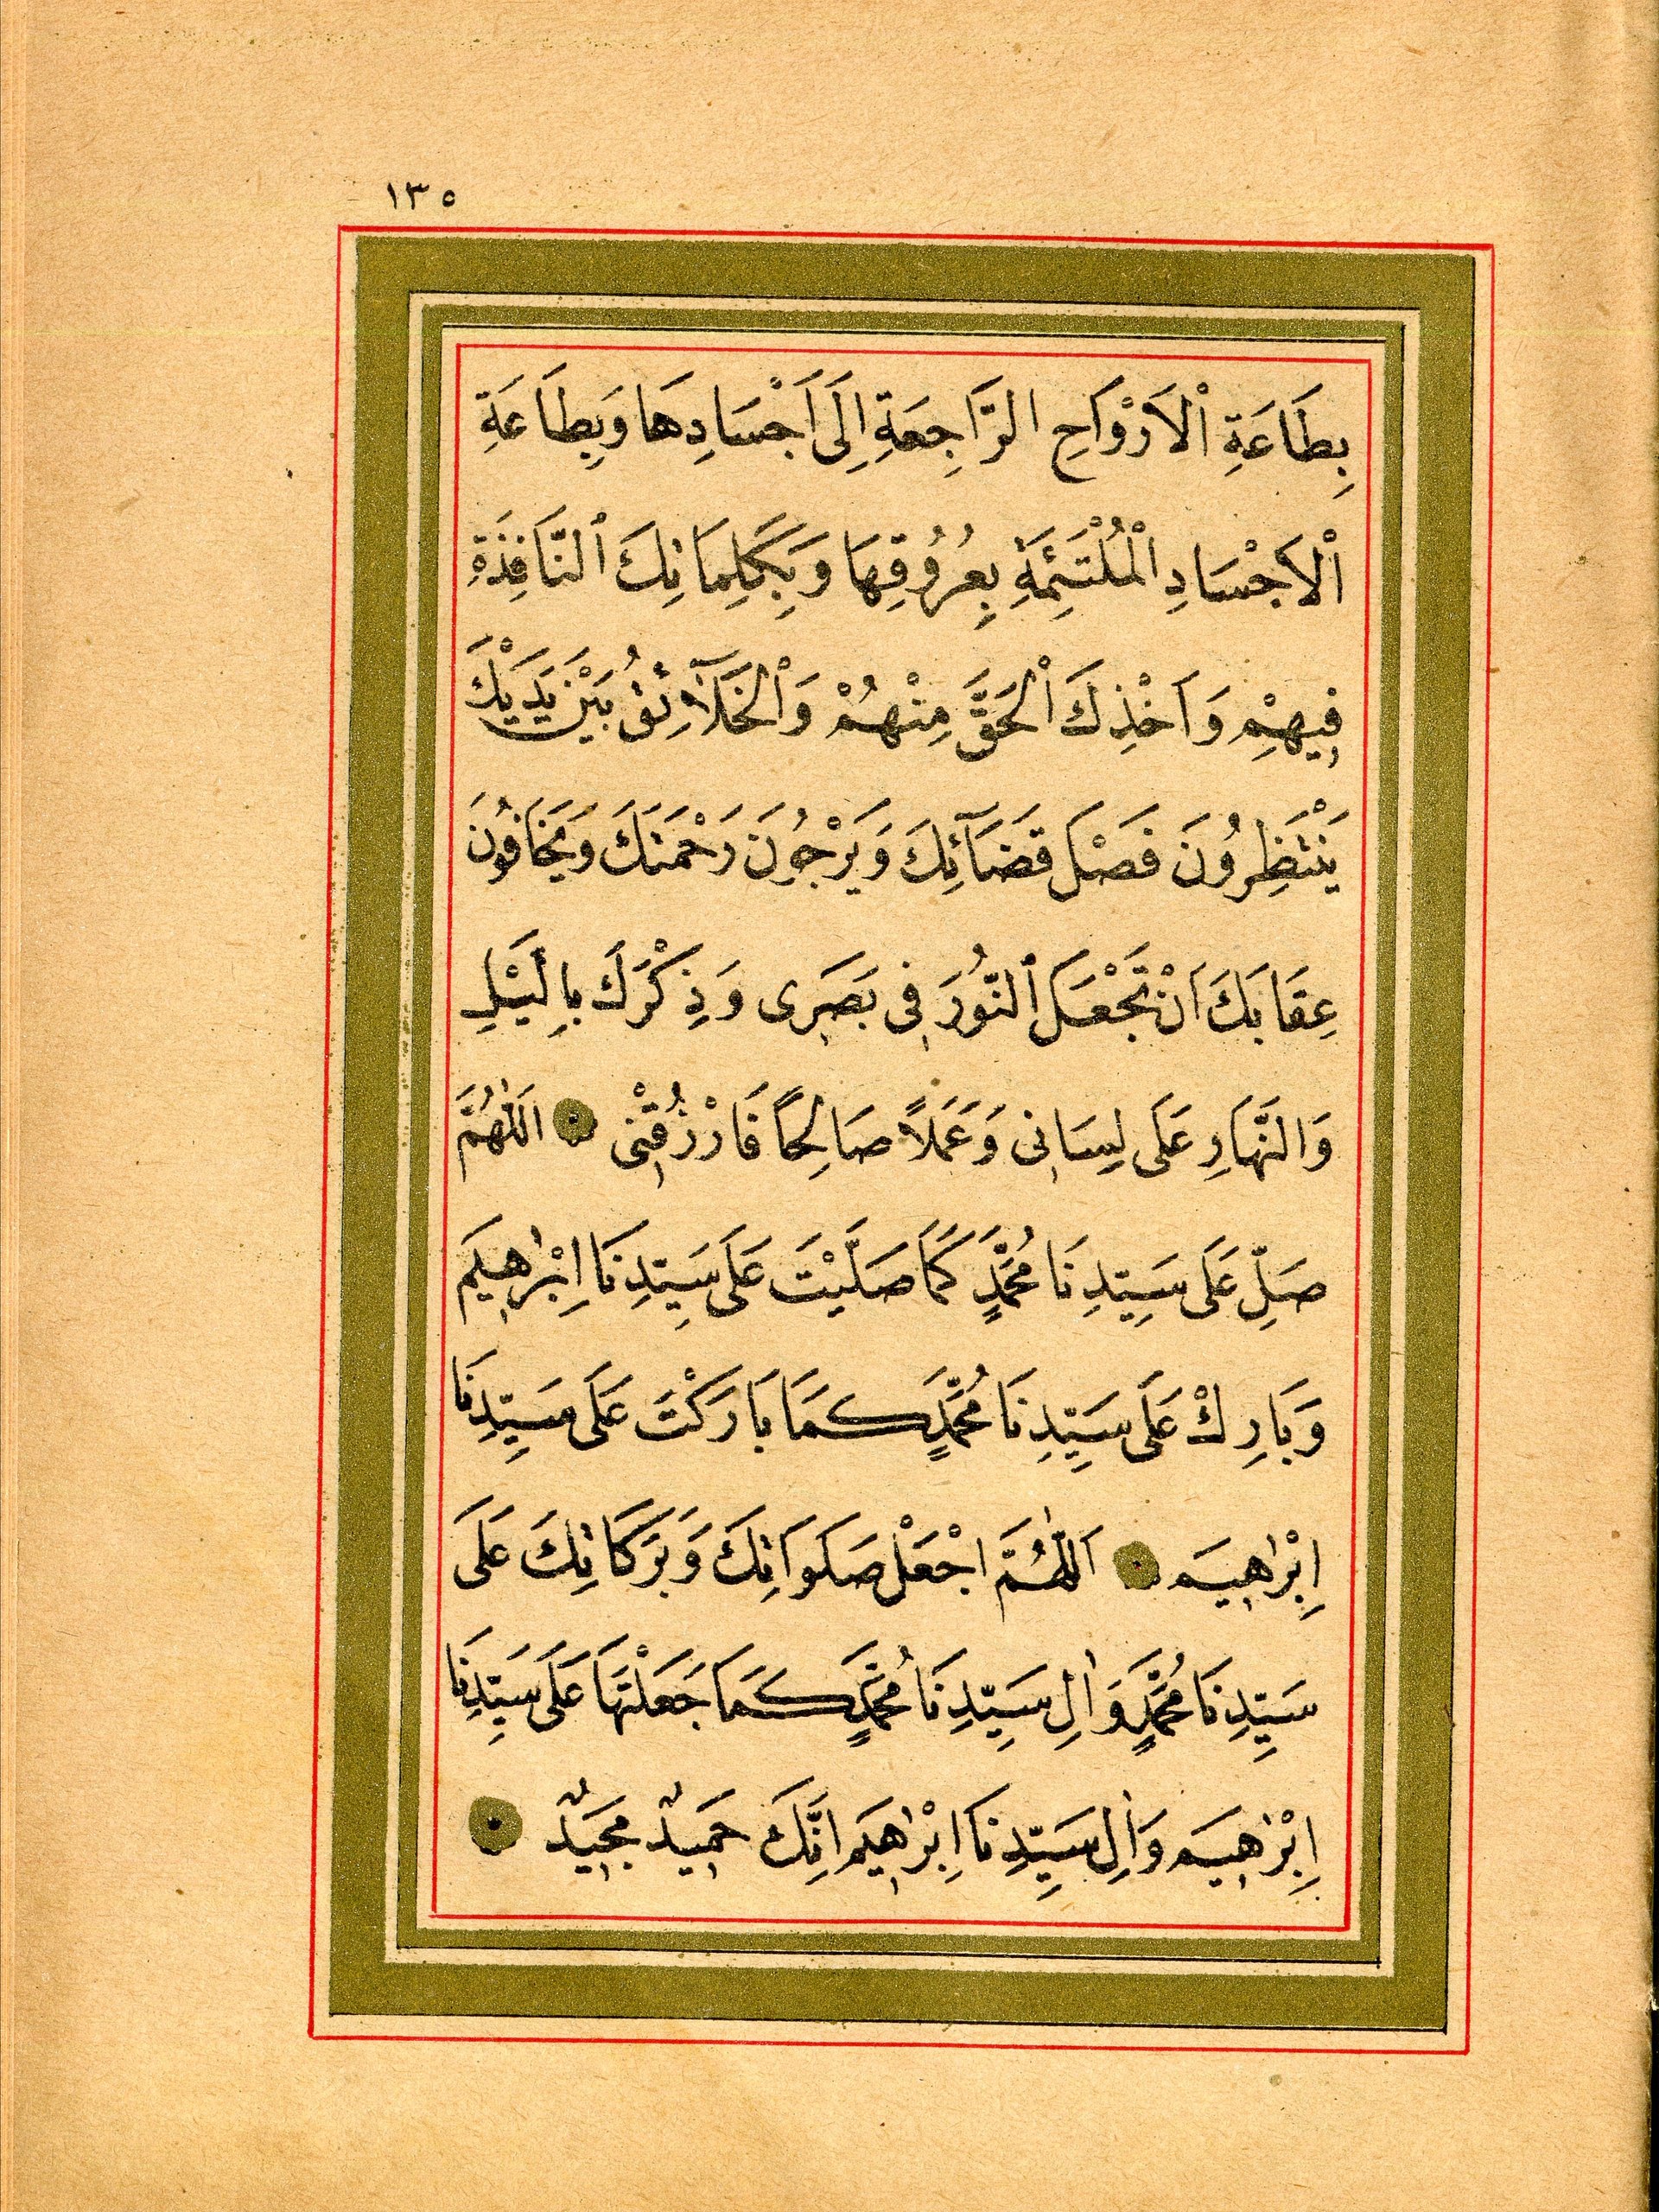 ١٣٥
بِطَاعَةِ ٱلْاَرْوَاحِ الرَّاجِعَةِ اِلَى اَجْسَادِهَا وَبِطَاعَةِ
ٱلْاَجْسَادِ الْمُلْتَئِمَةِ بِعُرُوقِهَا وَبِكَلِمَاتِكَ ٱلنَّافِذَةِ
فِيهِمْ وَاَخْذِكَ ٱلْحَقَّ مِنْهُمْ وَٱلْخَلَآئِقُ بَيْنَ يَدَيْكَ
يَنْتَظِرُونَ فَصْلَ قَضَآئِكَ وَيَرْجُونَ رَحْمَتَكَ وَيَخَافُونَ
عِقَابَكَ اَنْ تَجْعَلَ ٱلنُّورَ فِى بَصَرِى وَذِكْرَكَ بِالَّيْلِ
وَالنَّهَارِ عَلَى لِسَانِى وَعَمَلًا صَالِحًا فَارْزُقْنِى اَللّٰهُمَّ
صَلِّ عَلَى سَيِّدِنَا مُحَمَّدٍ كَمَا صَلَّيْتَ عَلَى سَيِّدِنَا اِبْرٰهِيمَ
وَبَارِكْ عَلَى سَيِّدِنَا مُحَمَّدٍ كَمَا بَارَكْتَ عَلَى سَيِّدِنَا
اِبْرٰهِيمَ اَللّٰهُمَّ اجْعَلْ صَلَوَاتِكَ وَبَرَكَاتِكَ عَلَى
سَيِّدِنَا مُحَمَّدٍ وَاٰلِ سَيِّدِنَا مُحَمَّدٍ كَمَا جَعَلْتَهَا عَلَى سَيِّدِنَا
اِبْرٰهِيمَ وَاٰلِ سَيِّدِنَا اِبْرٰهِيمَ اِنَّكَ حَمِيدٌ مَجِيدٌ